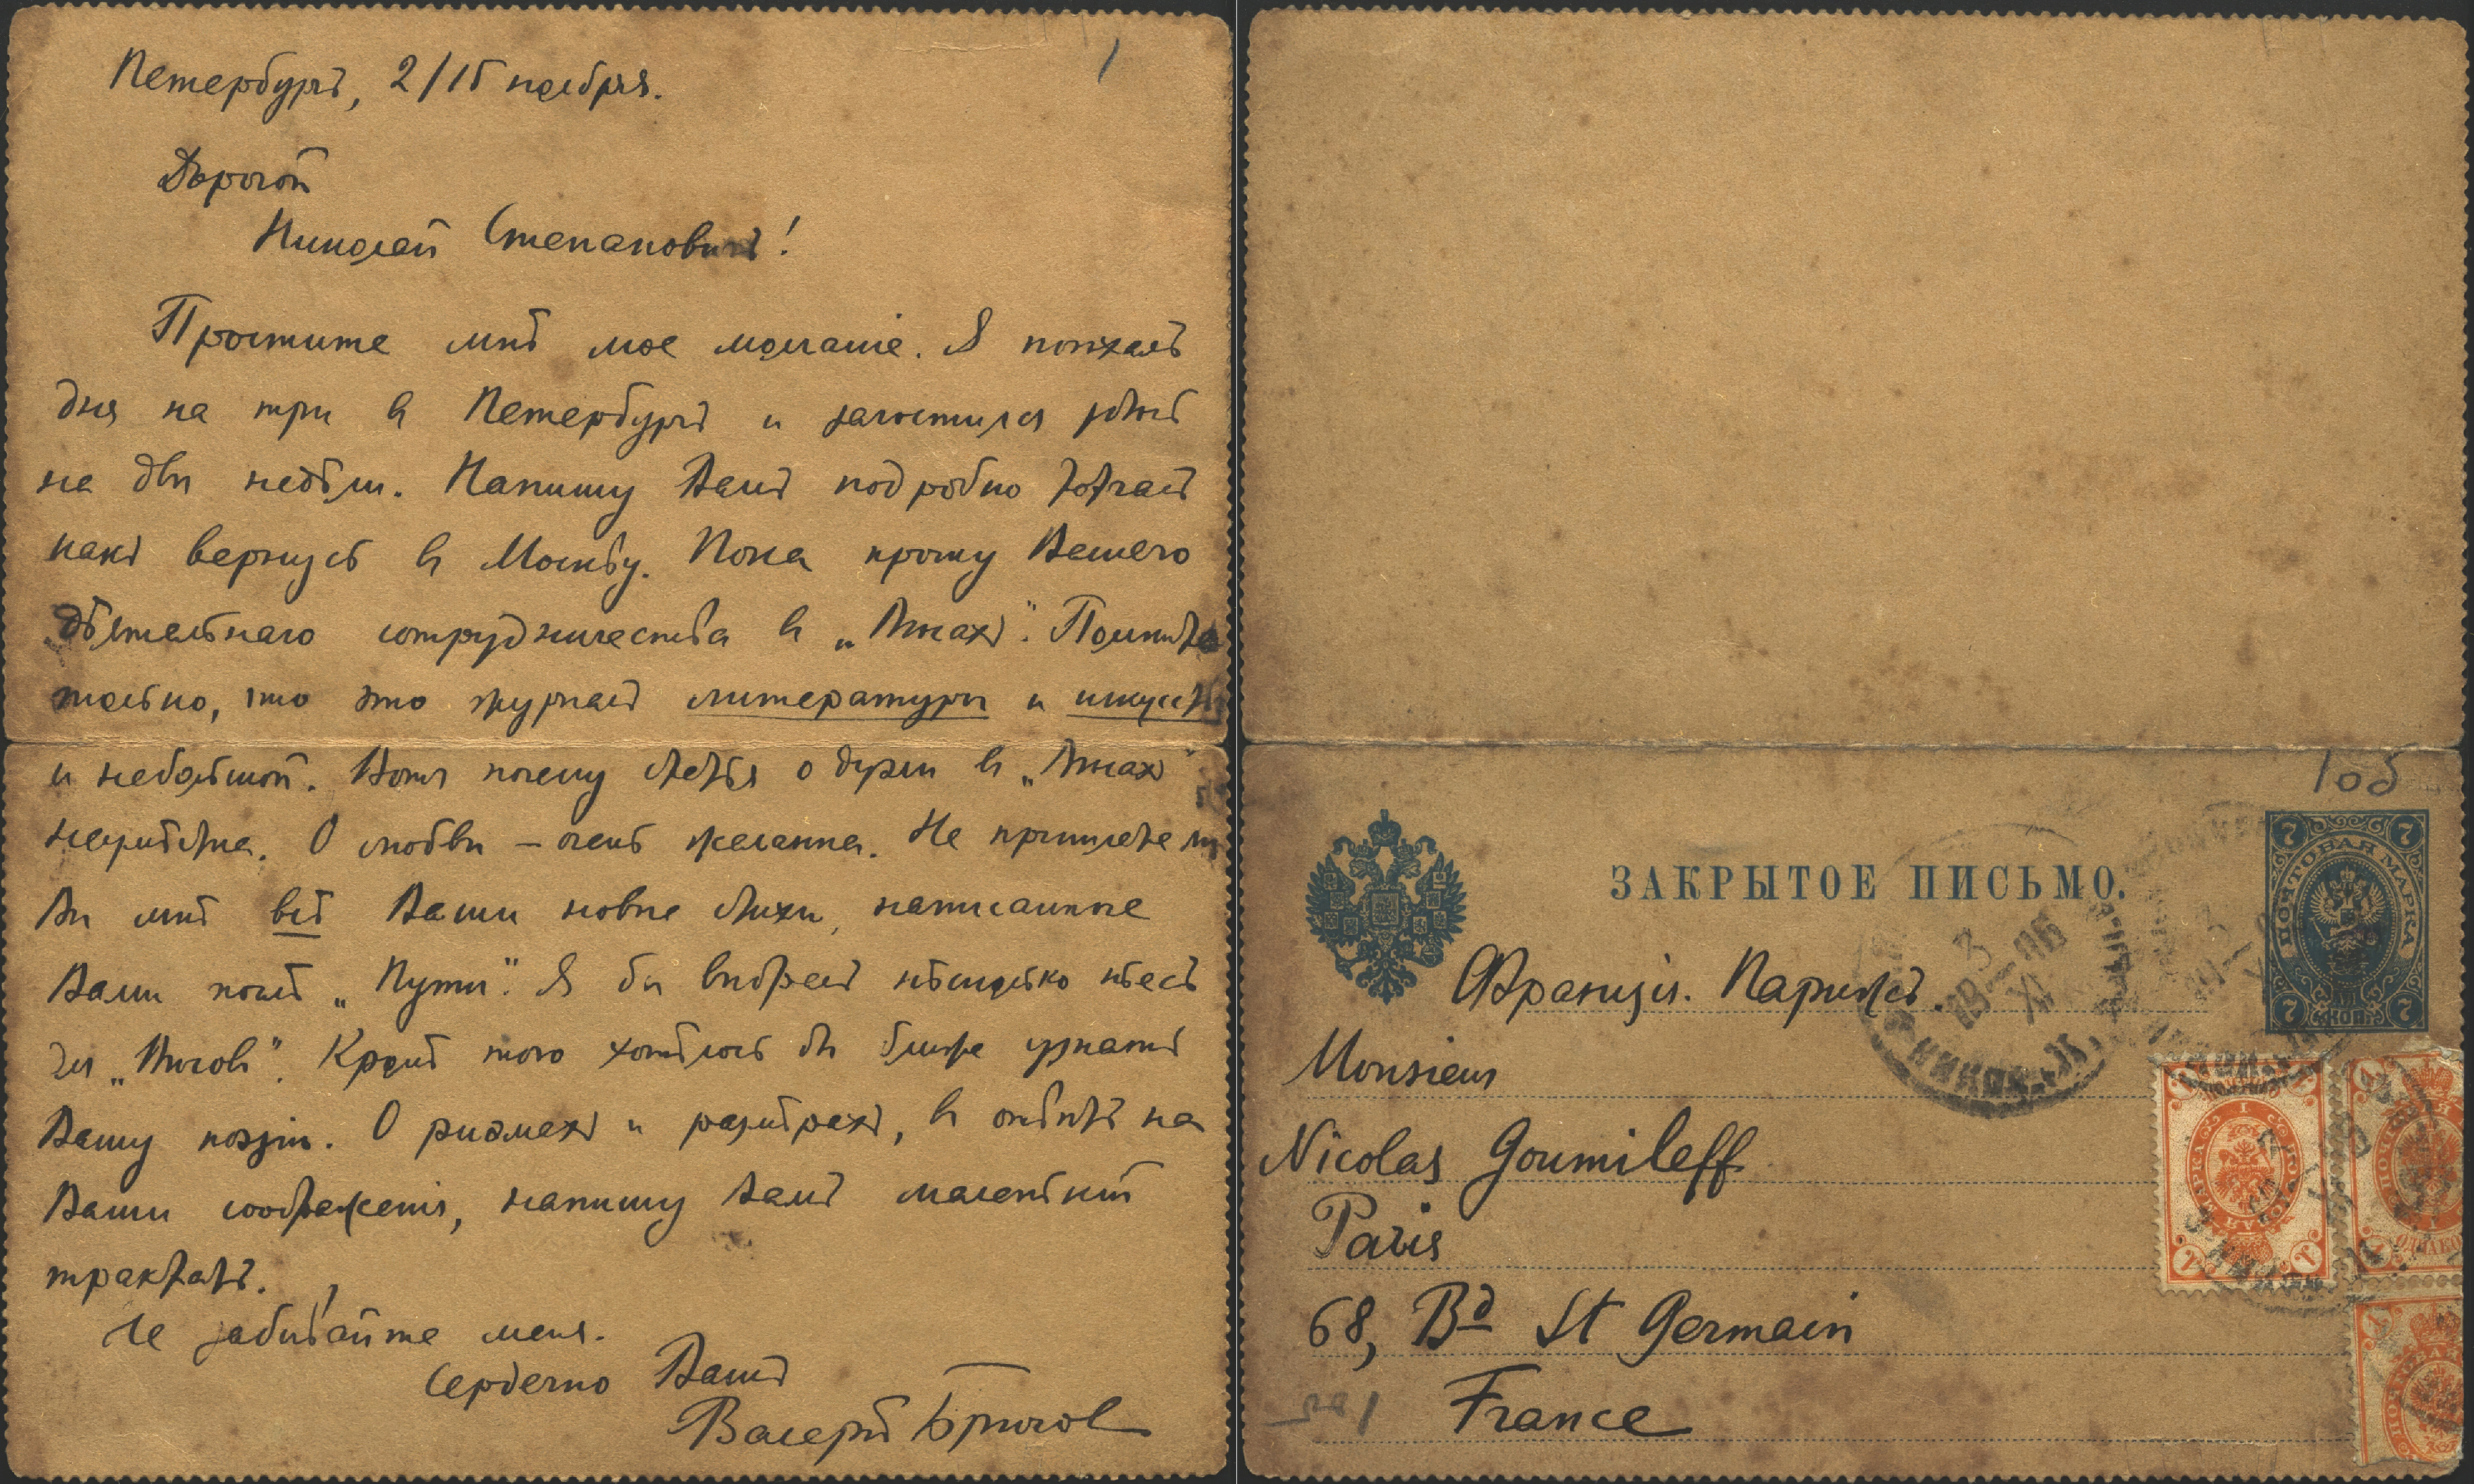 Петербургъ, 2/15 ноября.
Дорогой
Николай Степановичъ!
Простите мнѣ мое молчаніе. Я поѣхалъ
дня на три въ Петербургъ и загостился здѣсь
на двѣ недѣли. Напишу Вамъ подробно тотчасъ
какъ вернусь въ Москву. Пока прошу Вашего
дѣятельнаго сотрудничества въ „Вѣсахъ“. Помните
только, что это журналъ литературы и искусств
и небольшой. Вотъ почему статья о Дузэ въ „Вѣсахъ“
О любви – очень желанна. Не пришлете ли
Вы мнѣ всѣ Ваши новые стихи, написанные
Вами послѣ „Пути“. Я бы выбралъ нѣсколько пьесъ
для „Вѣсовъ“. Кромѣ того хотѣлось бы ближе узнать
Вашу поэзію. О риѳмахъ и размѣрахъ, въ отвѣтъ на
Ваши соображенія, напишу Вамъ маленькій
трактатъ.
Не забывайте меня.
Сердечно Вашъ
Валерій Брюсовъ
1
1об
ЗАКРЫТОЕ ПИСЬМО.
ПОЧТОВАЯ МАРКА
7 КОП. 7
Франція. Парижъ.
Monsieur
Nicolas Goumileff
Paris
68, Bd St Germain
France